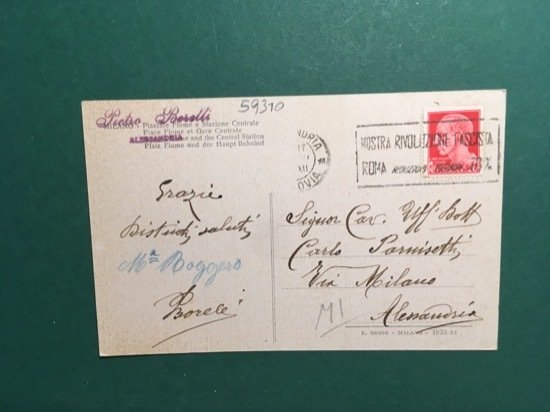 59310
Pietro Borelli
MILANO - Piazzale Fiume e Stazione Centrale
Place Fiume et Gare Centrale
ALESSANDRIA
and the Central Station
Platz Fiume und der Haupt Bahnhof
MOSTRA RIVOLUZIONE FASCISTA
ROMA RIDUZIONI FERROV. 70%
XII
Grazie
Distinti saluti
Ma Boggero
Borelli
Signor Cav. Uff. Dott
Carlo
Via Milano
Alessandria
MI
MILANO - 1933 XI